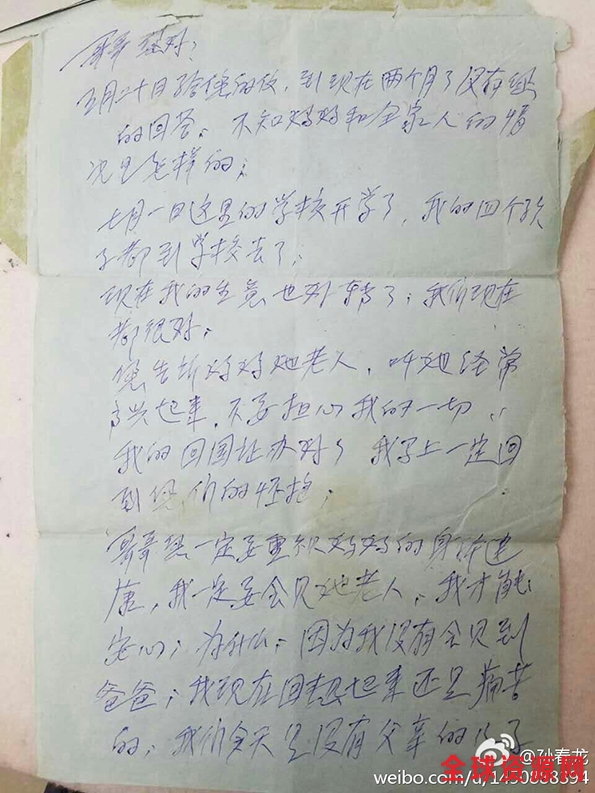 哥哥您好:
五月二十日给您的信，到现在两个月了没有您
的回答。不知妈妈和全家人的情
况是怎样的；
七月一日这里的学校开学了，我的四个孩
子都到学校去了；
现在我的生意也好转了；我们现在
都很好；
您告诉妈妈她老人，叫她经常
高兴起来，不要担心我的一切，
我的回国证办好了 我马上一定回
到您们的怀抱；
哥哥您一定要重视妈妈的身体健
康，我一定要会见她老人，我才能
安心；为什么；因为我没有会见到
爸爸；我现在回想起来还是痛苦
的；我们今天是没有父亲的儿子
@孙春龙
全球资源网
weibo.com/u/1450883394